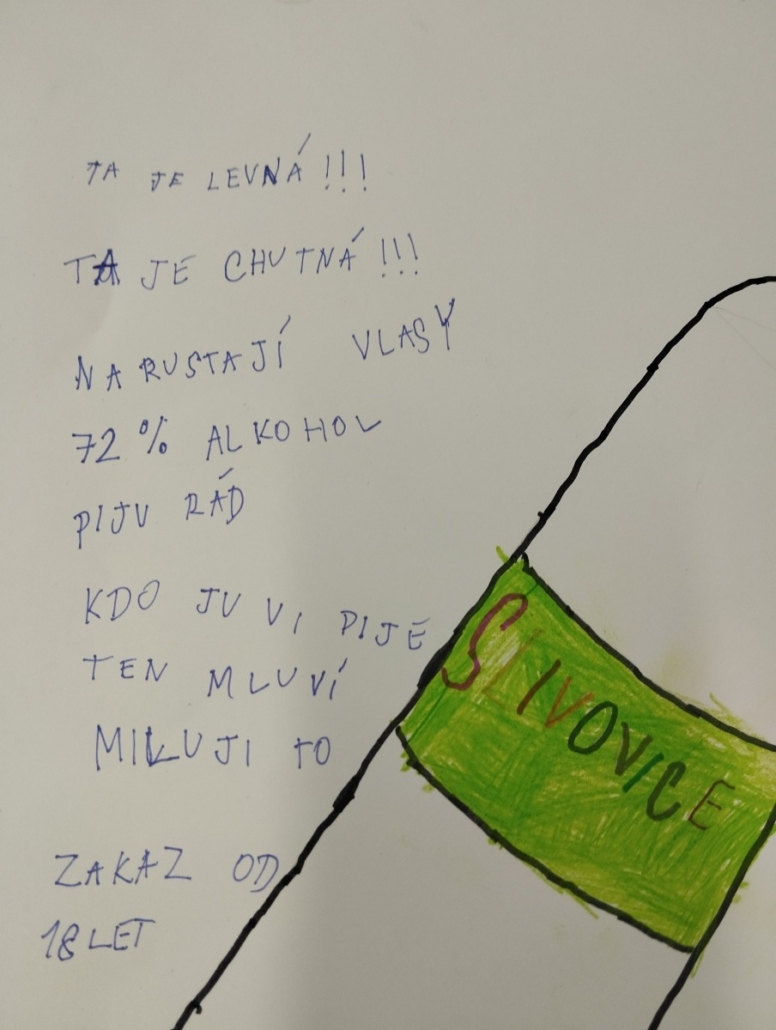 TA JE LEVNÁ!!!
TA JE CHUTNÁ!!!
NARUSTAJÍ VLASY
72% ALKOHOL
PIJU RÁD
KDO JU VI PIJE
TEN MLUVÍ
MILUJI TO
ZAKAZ OD
18 LET
SLIVOVICE